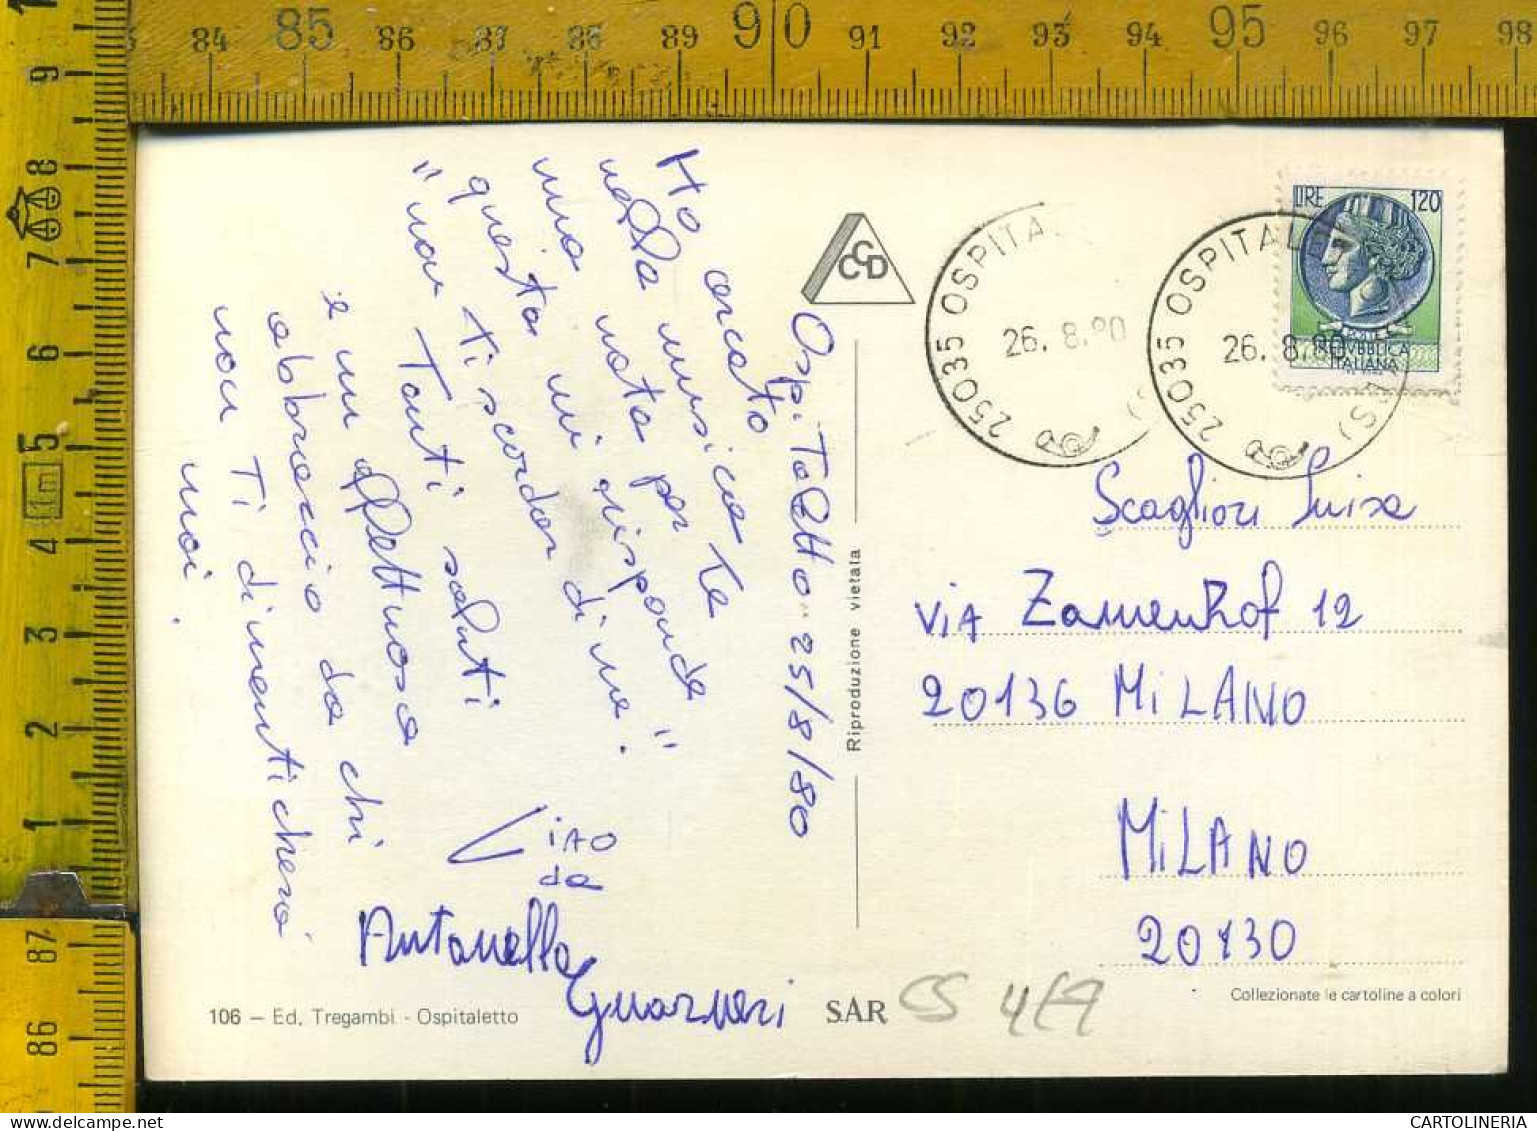 84 85 86 87 88 89 90 91 92 93 94 95 96 97 98
9
8
7
6
5
1m
4
3
2
1
87
86
Ospitaletto 25/8/80
Ho cercato
nella musica te
una nota per
questa mi risponde
"non ti scordar di me."
Tanti saluti
e un affettuoso
abbraccio da chi
non Ti dimenticherà
mai.
CIAO
da
Antonella
Guarneri
CCD
Riproduzione vietata
25035 OSPITA
26.8.80
25035 OSPITALE (BS)
26.8.80
LIRE 120
REPVBBLICA
ITALIANA
Scaglioni Luisa
VIA Zamenhof 12
20136 MiLANO
MiLANO
20130
106 — Ed. Tregambi - Ospitaletto
SAR
CS
Collezionate le cartoline a colori
CARTOLINERIA